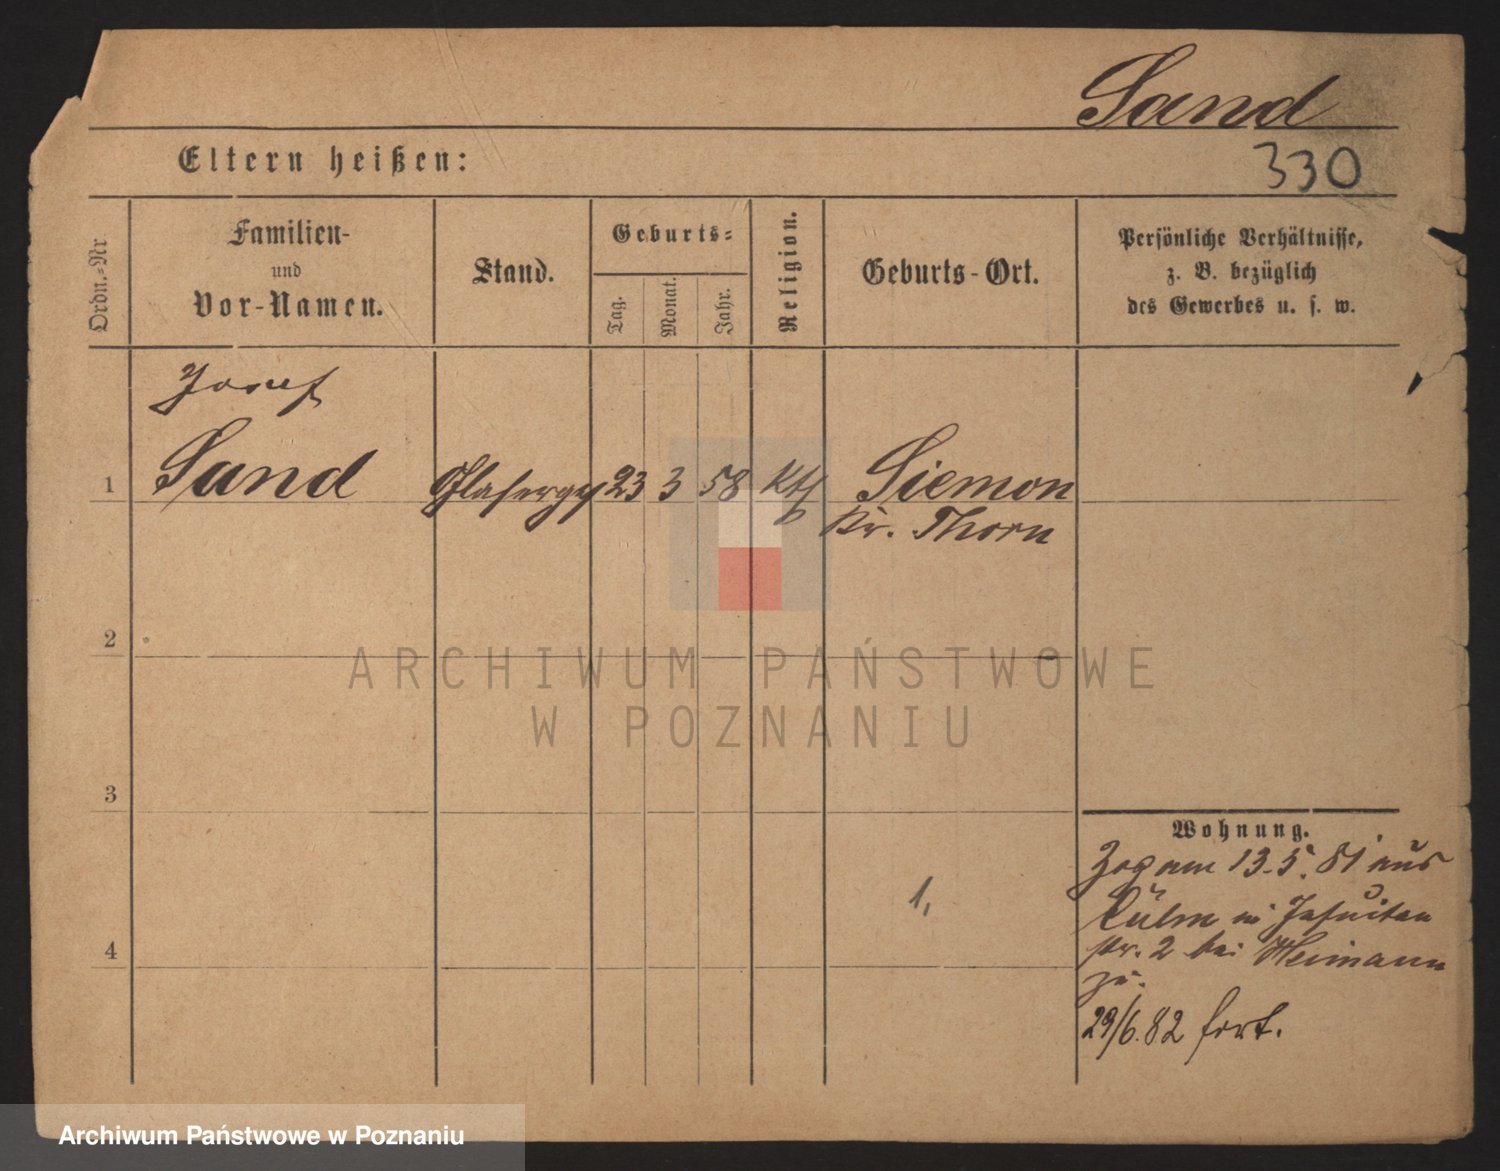 Sand
Eltern heißen:
330
Ordn.-Nr
Familien-
und
Vor-Namen.
Stand.
Geburts-
Tag.
Monat.
Jahr.
Religion.
Geburts-Ort.
Persönliche Verhältnisse,
z. B. bezüglich
des Gewerbes u. s. w.
Josef
1 Sand Glaserges 23 3 58 kth Siemon
Kr. Thorn
2
3
4
1,
Wohnung.
Zog am 13.5.81 aus
Culm in Jesuiten
str. 2 bei Heimann
zu.
29/6.82 fort.
ARCHIWUM PAŃSTWOWE
W POZNANIU
Archiwum Państwowe w Poznaniu